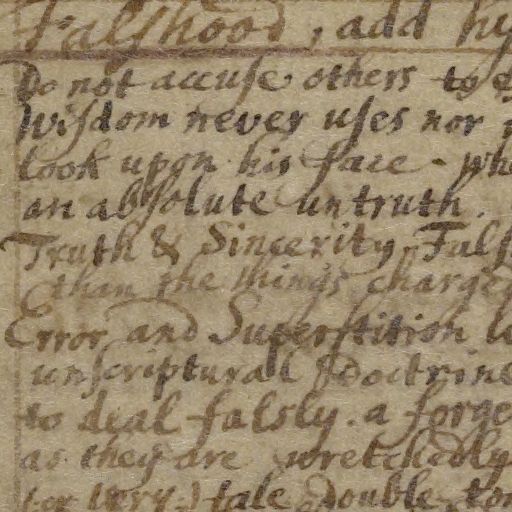 Falshood, add hy
Do not accuse others to
Wisdom never uses nor
look upon his face - whe
an absolute untruth.
Truth & Sincerity. Fals
than the things charge
Error and Superstition
unscripturall Doctrine
to deal falsly. a forge
as they are wretchedly
lye (very) tale Double